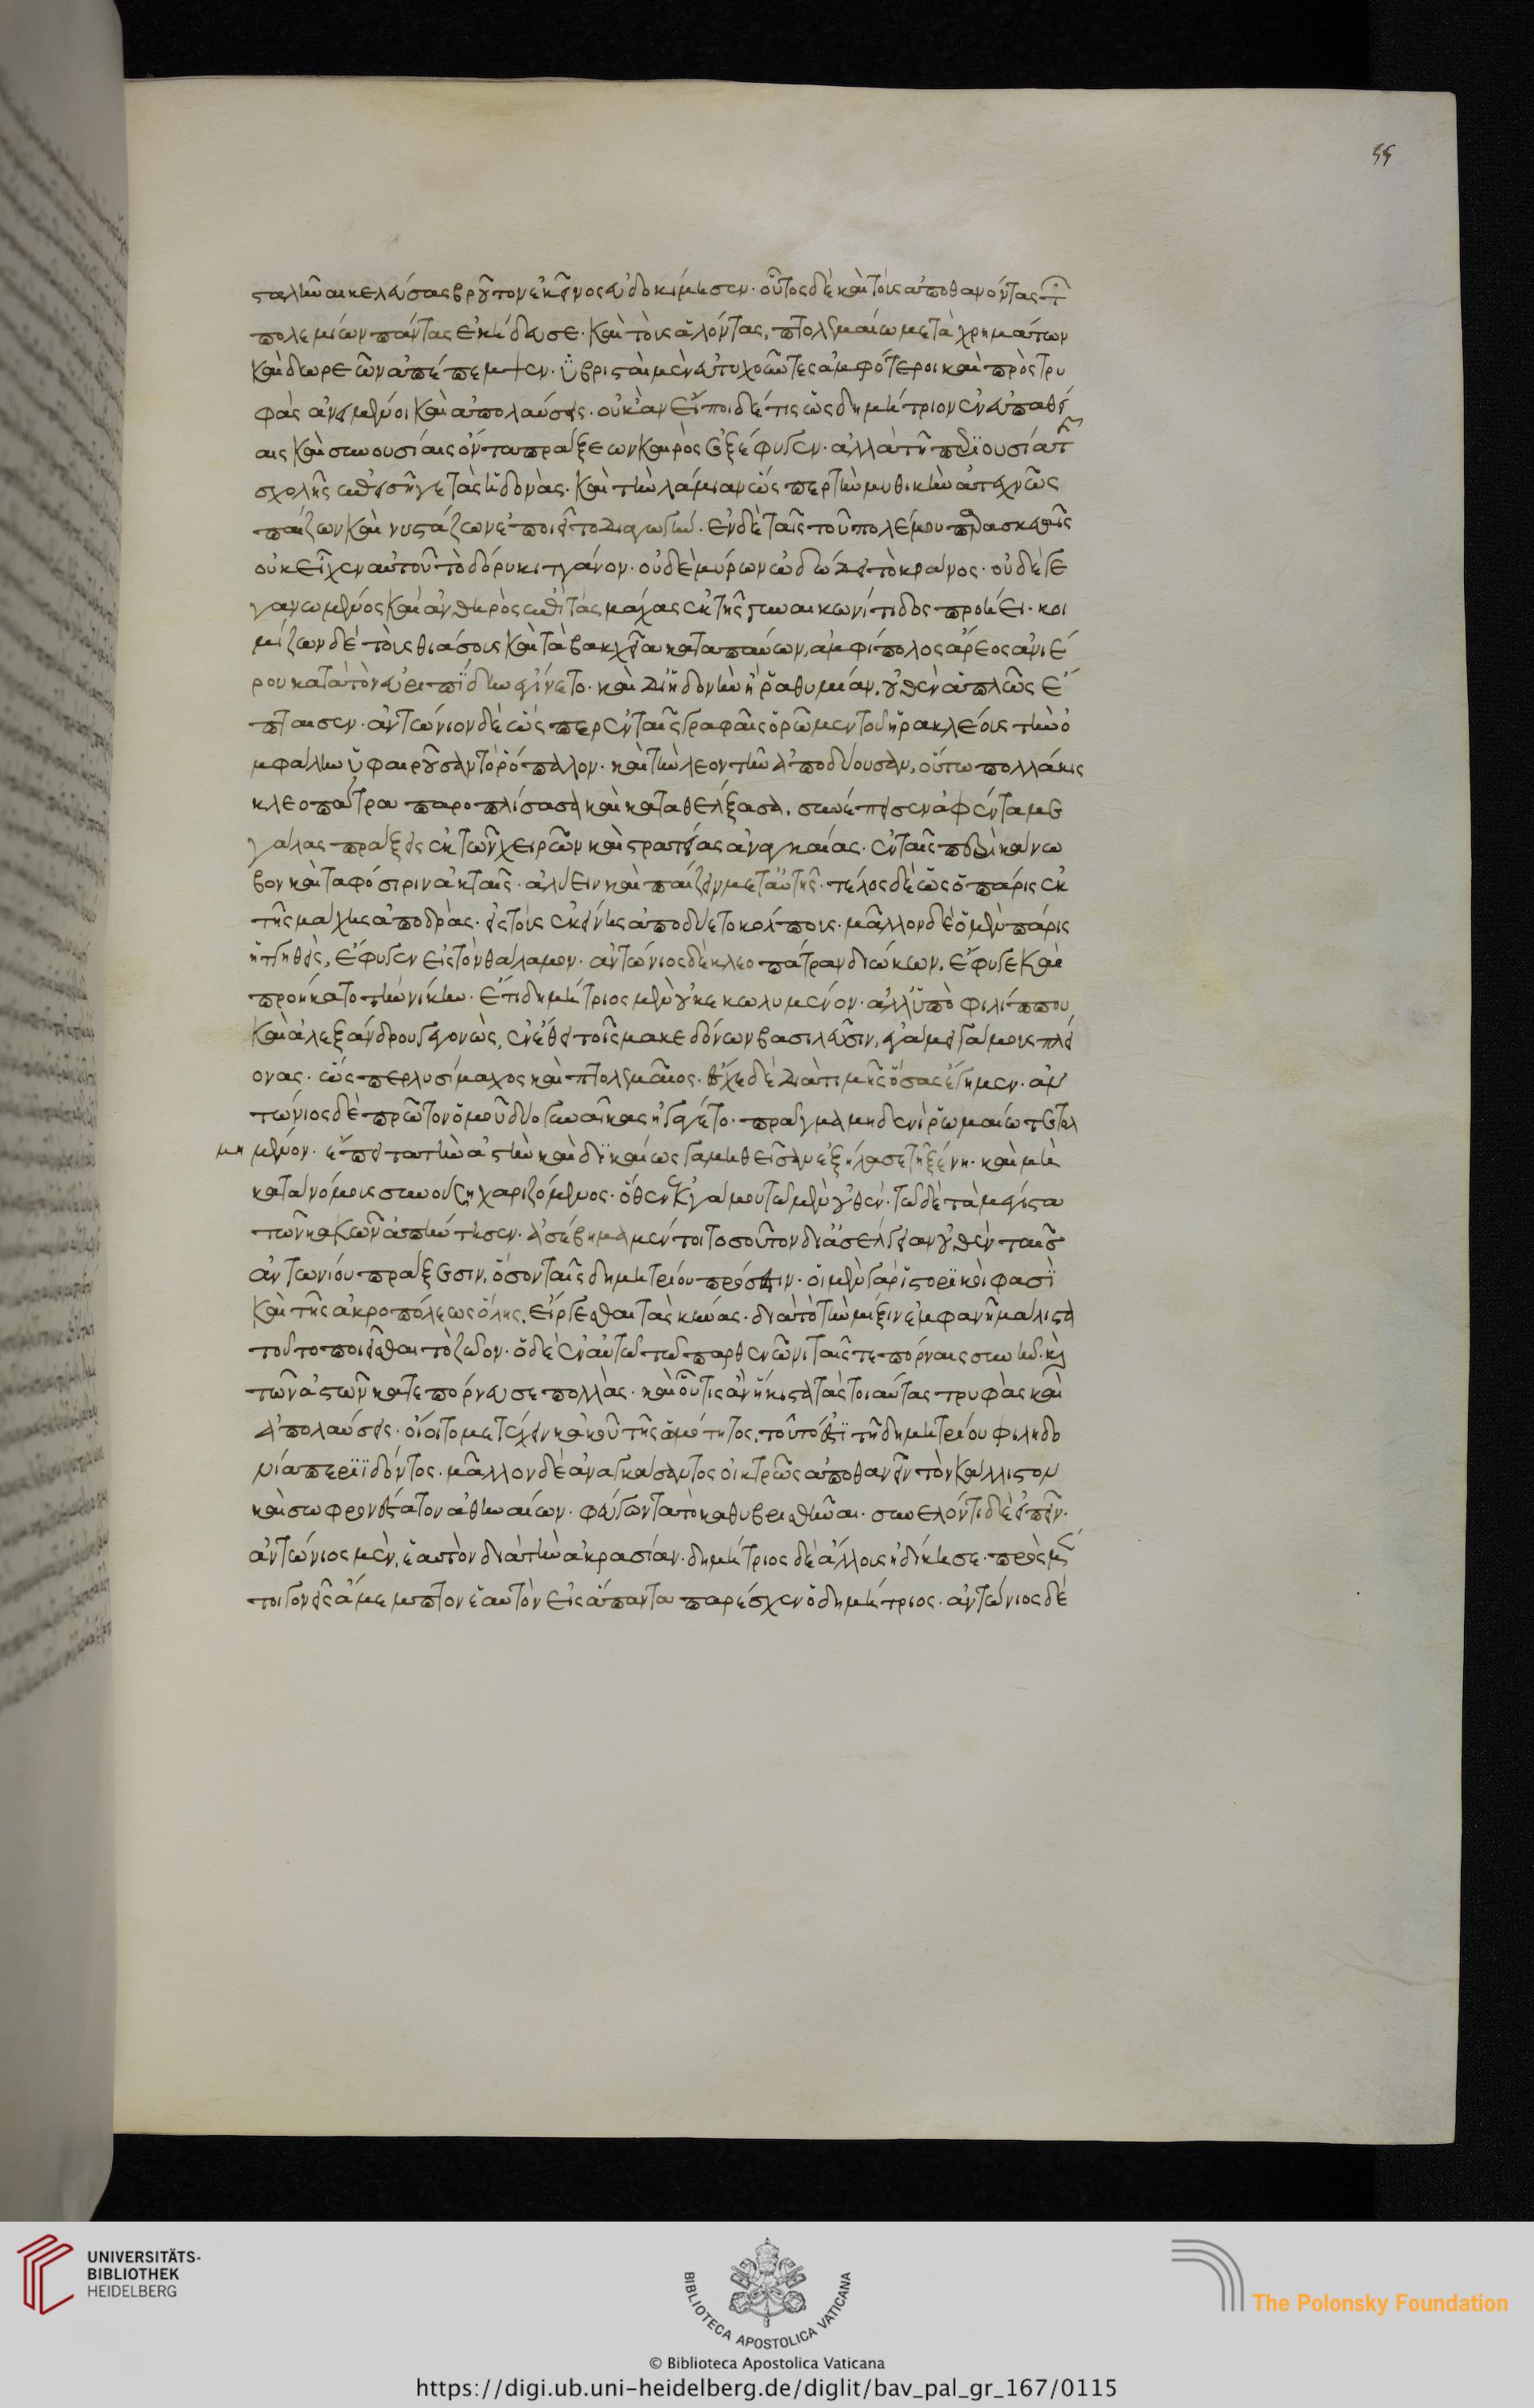 σταλῆναι κελεύσας βροῦτον ἐκεῖνος εὐδοκίμησεν· οὗτος δὲ καὶ τοὺς ἀποθανόντας τῶν
πολεμίων πάντας ἐκήδευσε· καὶ τοὺς ἁλόντας, πτολεμαίω μετὰ χρημάτων
καὶ δωρεῶν ἀπέπεμψεν· ὑβρισταὶ μὲν εὐτυχοῦντες ἀμφότεροι καὶ πρὸς τρυ
φὰς ἀνειμένοι καὶ ἀπολαύσεις· οὐκ ἂν εἴποι δέ τις ὡς δημήτριον ἐν εὐπαθεί
αις καὶ συνουσίαις ὄντα πράξεων καιρὸς ἐξέφυγεν· ἀλλὰ τῆ περιουσία τῆς
σχολῆς ἐπεισῆγε τὰς ἡδονάς· καὶ τὴν λάμιαν ὥσπερ τὴν μυθικὴν ἀτεχνῶς
παίζων καὶ νυστάζων ἐποιεῖτο διαγωγήν· ἐν δὲ ταῖς τοῦ πολέμου παρασκευαῖς
οὐκ εἶχεν αὐτοῦ τὸ δόρυ κιττάνον· οὐδὲ μύρων ὠδώδει τὸ κράνος· οὐδὲ γε
γανωμένος καὶ ἀνθηρὸς ἐπὶ τὰς μάχας ἐκ τῆς γυναικωνίτιδος προήει· κοι
μίζων δὲ τοὺς θιάσους καὶ τὰ βακχεῖα καταπαύων, ἀμφίπολος ἄρεος ἀνιέ
ρου κατὰ τὸν εὐριπίδην ἐγίνετο· καὶ δι' ἡδονὴν ἢ ῥαθυμίαν, οὐθὲν ἁπλῶς ἔ
πταισεν· ἀντώνιον δὲ ὥσπερ ἐν ταῖς γραφαῖς ὁρῶμεν τοῦ ἡρακλέους τὴν ὀ
μφάλην ὑφαιροῦσαν τὸ ῥόπαλον· καὶ τὴν λεοντῆν ἀποδύουσαν, οὕτω πολλάκις
κλεοπάτρα παροπλίσασα καὶ καταθέλξασα, συνέπεισεν ἀφέντα με
γάλας πράξεις ἐκ τῶν χειρῶν καὶ στρατείας ἀναγκαίας· ἐν ταῖς περὶ κάνω
βον καὶ ταφόσιριν ἀκταῖς· ἀλύειν καὶ παίζειν μετ' αὐτῆς· τέλος δὲ ὡς ὁ πάρις ἐκ
τῆς μάχης ἀποδρὰς· εἰς τοὺς ἐκείνης ἀπεδύετο κόλπους· μᾶλλον δὲ ὁ μὲν πάρις
ἡττηθεὶς, ἔφυγεν εἰς τὸν θάλαμον· ἀντώνιος δὲ κλεοπάτραν διώκων, ἔφυγε καὶ
προήκατο τὴν νίκην· ἔτι δημήτριος μὲν οὐ κεκωλυμένον· ἀλλ' ὑπὸ φιλίππου
καὶ ἀλεξάνδρου γεγονὼς, ἐν ἔθει τοῖς μακεδόνων βασιλεῦσιν, ἐγάμει γάμους πλεί
ονας· ὥσπερ λυσίμαχος καὶ πτολεμαῖος· ἔσχε δὲ διὰ τιμῆς ὅσας ἔγημεν· ἀν
τώνιος δὲ πρῶτον ὁμοῦ δύο γυναῖκας ἠγάγετο· πρᾶγμα μηδενὶ ῥωμαίω τετολ
μη μένον· ἔπειτα τὴν ἀστὴν καὶ δικαίως γαμηθεῖσαν ἐξήλασε τῆ ξένη· καὶ μὴ
κατὰ νόμους συνούση χαριζόμενος· ὅθεν ἐκ γάμου τῶ μὲν οὐθέν· τῶ δὲ τὰ μέγιστα
τῶν κακῶν ἀπήντησεν· ἀσέβημα μέντοι τοσοῦτον δι' ἀσέλγειαν οὐθὲν ταῖς
ἀντωνίου πράξεσιν, ὅσον ταῖς δημητρίου πρόσεστιν· οἱ μὲν γὰρ ἱστορικοί φασὶ
καὶ τῆς ἀκροπόλεως ὅλης, εἴργεσθαι τὰς κύνας· διὰ τὸ τὴν μῖξιν ἐμφανῆ μάλιστα
τοῦτο ποιεῖσθαι τὸ ζῶον· ὁ δὲ ἐν αὐτῶ τῶ παρθενῶνι ταῖς τε πόρναις συνῆν· καὶ
τῶν ἀστῶν κατεπόρνευσε πολλὰς· καὶ οὗ τις ἂν ἥκιστα τὰς τοιαύτας τρυφὰς καὶ
ἀπολαύσεις· οἴοιτο μετέχειν κακοῦ τῆς ὠμότητος, τοῦτό ἐστι τῆ δημητρίου φιληδο
νία περιϊδόντος· μᾶλλον δὲ ἀναγκάσαντος οἰκτρῶς ἀποθανεῖν τὸν κάλλιστον
καὶ σωφρονέστατον ἀθηναίων· φεύγοντα τὸ καθυβρισθῆναι· συνελόντι δὲ εἰπεῖν·
ἀντώνιος μὲν, ἑαυτὸν διὰ τὴν ἀκρασίαν· δημήτριος δὲ ἄλλους ἠδίκησε· πρὸς μέν
τοι γονεῖς ἄμεμπτον ἑαυτὸν εἰς ἅπαντα παρέσχεν ὁ δημήτριος· ἀντώνιος δὲ
UNIVERSITÄTS-
BIBLIOTHEK
HEIDELBERG
BIBLIOTECA APOSTOLICA VATICANA
The Polonsky Foundation
© Biblioteca Apostolica Vaticana
https://digi.ub.uni-heidelberg.de/diglit/bav_pal_gr_167/0115